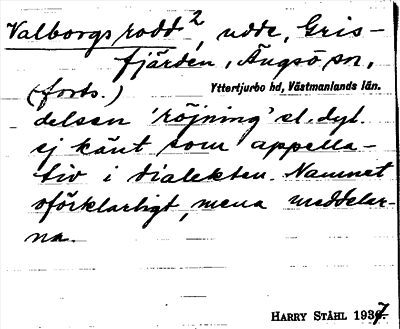 Valborgsrodd 2, udde, Gris-
fjärden, Ängsö sn,
(forts.) Yttertjurbo hd, Västmanlands län.
delsen 'röjning' el. dyl.
ej känt som appella-
tiv i dialekten. Namnet
oförklarligt, mena meddelar-
na.
HARRY STÅHL 1937.